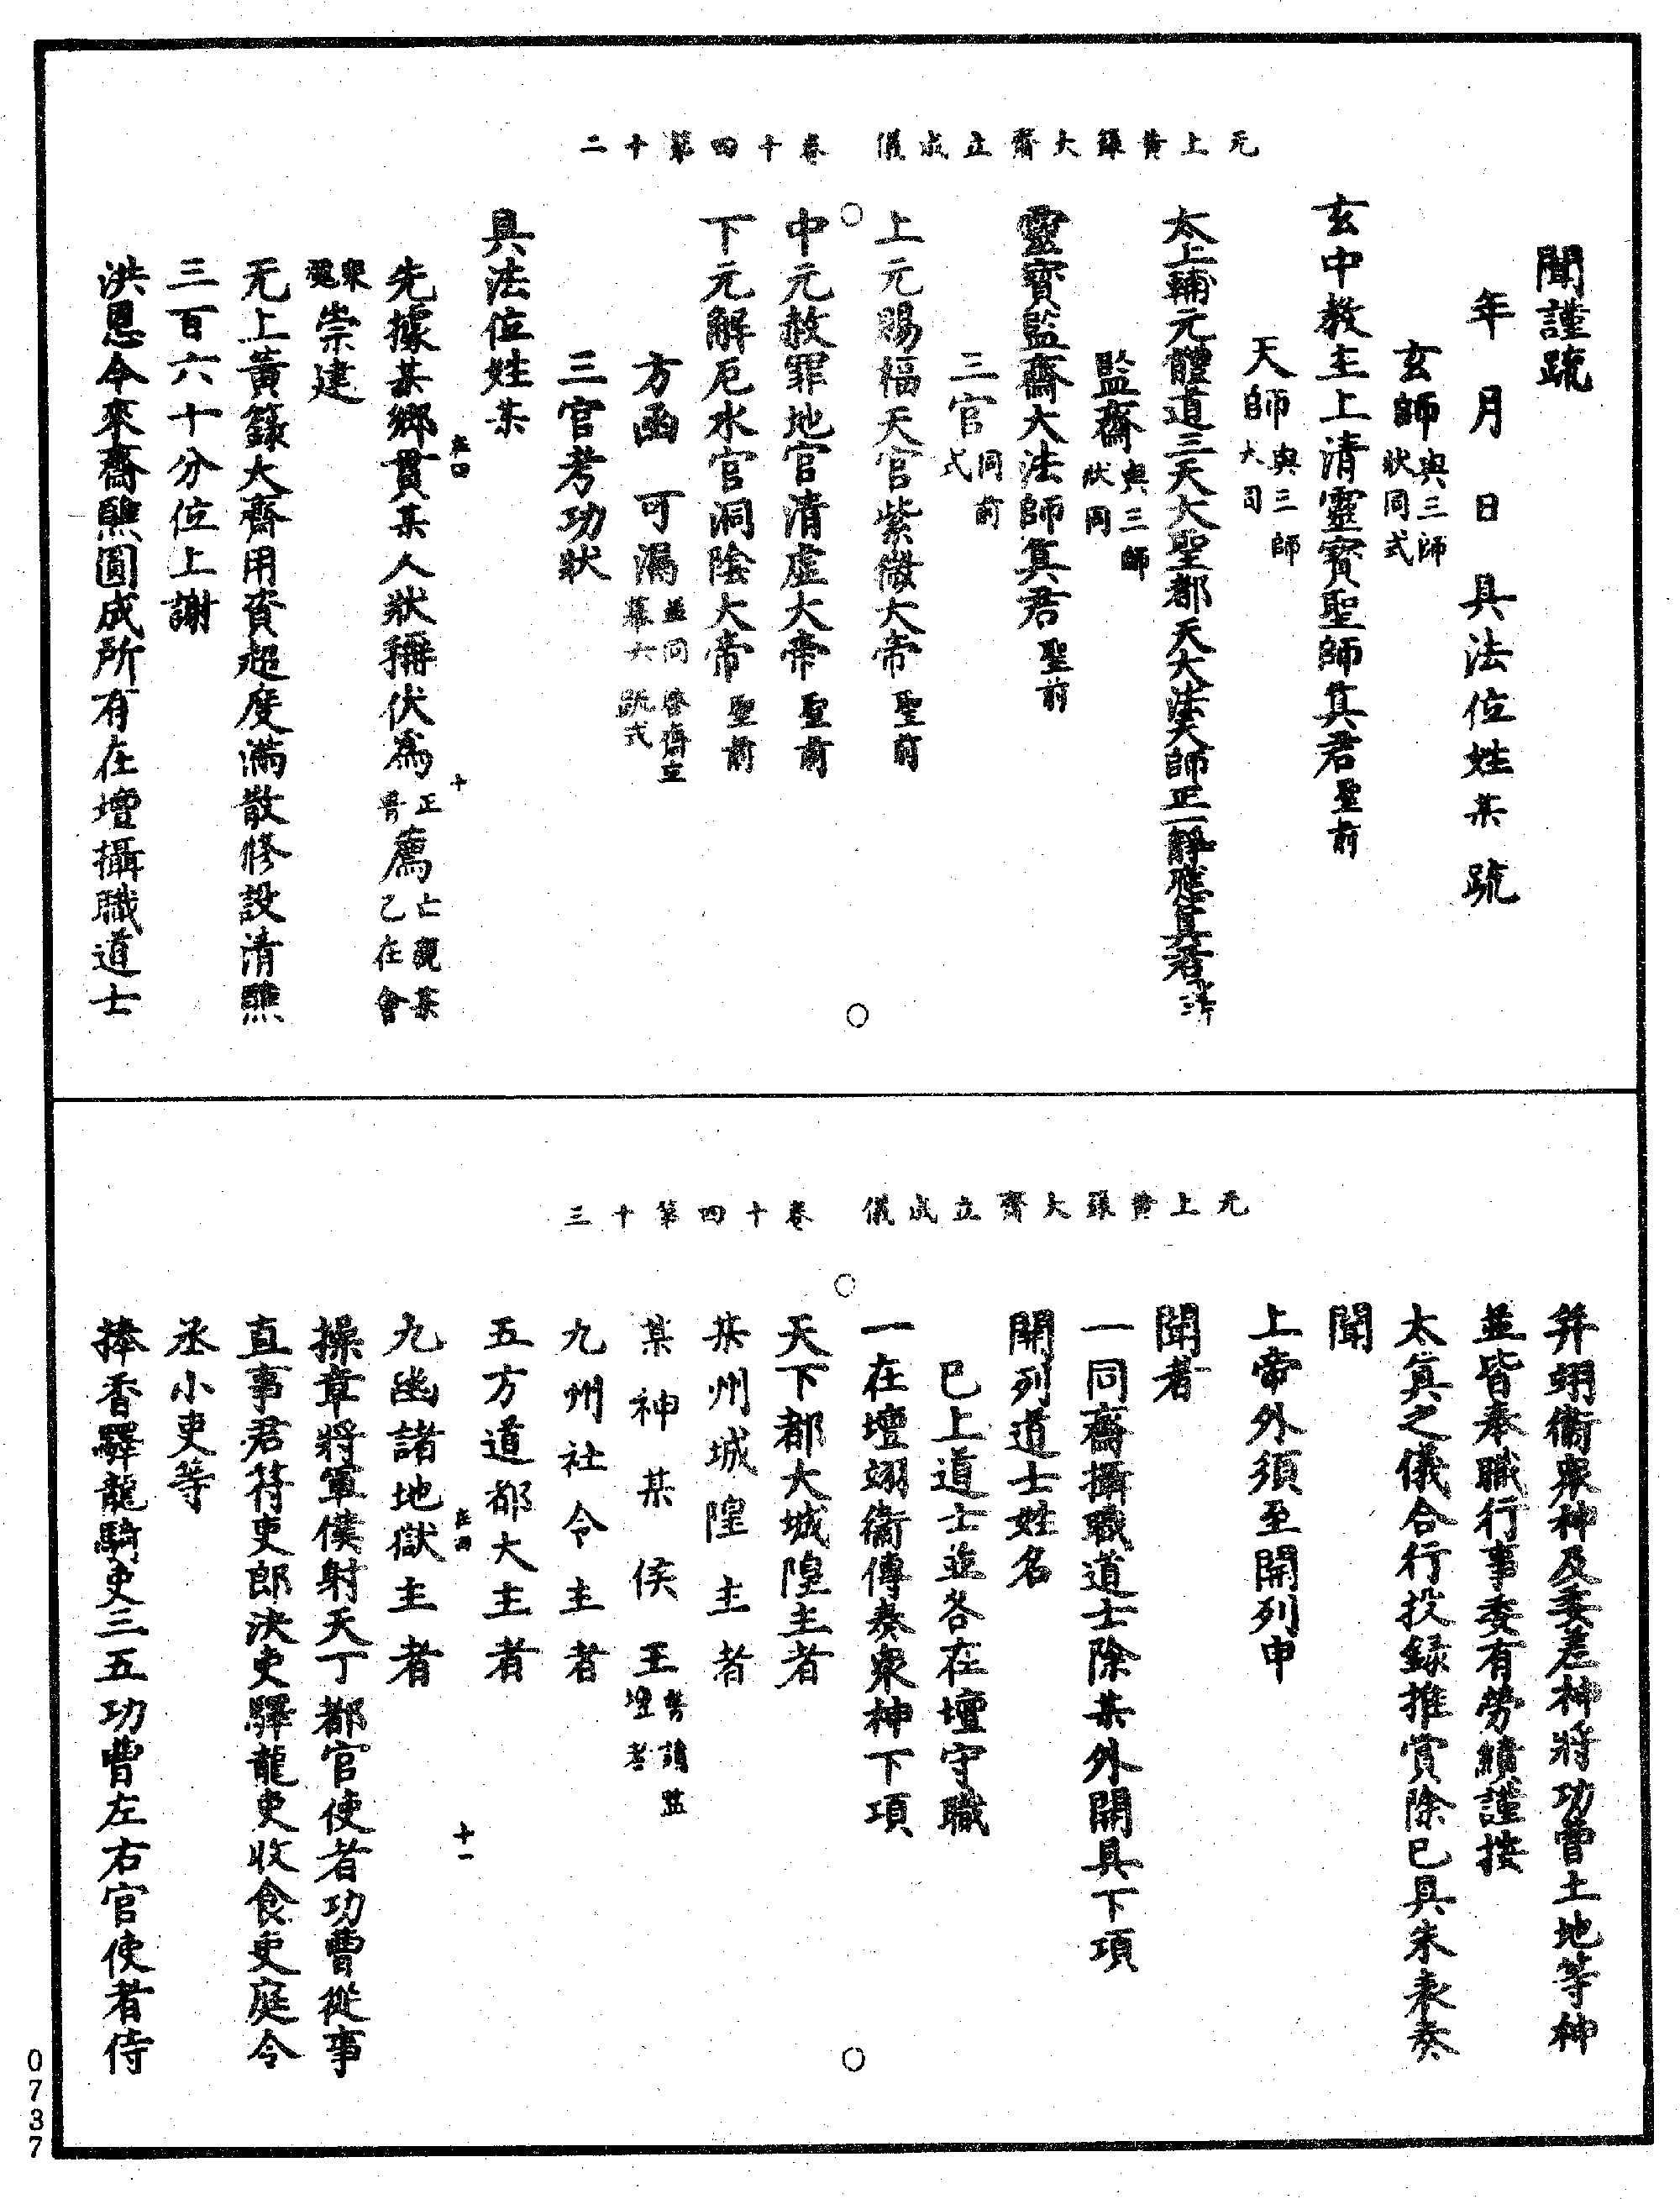 无上黃籙大齋立成儀　卷十四第十二
聞謹疏
年　月　日　具法位姓某　疏
玄師與三師狀同式
玄中教主上清靈寶聖師真君聖前
天師與三師大同
太上輔元體道三天大聖都天大法天師正一靜應真君
監齋與三師狀同
靈寶監齋大法師真君聖前
三官同前式
上元賜福天官紫微大帝聖前
中元赦罪地官清虛大帝聖前
下元解厄水官洞陰大帝聖前
方函　可漏並同
三官考功狀
具法位姓某
先據某鄉貫某人狀稱伏為正薦亡親某乙在會
眾魂崇建
无上黃籙大齋用資超度滿散修設清醮
三百六十分位上謝
洪恩今來齋醮圓成所有在壇攝職道士
无上黃籙大齋立成儀　卷十四第十三
并翊衛眾神及委差神將功曹土地等神
並皆奉職行事委有勞績謹按
太真之儀合行投錄推賞除已具朱表奏
聞
上帝外須至開列申
聞者
一同齋攝職道士除某外開具下項
開列道士姓名
已上道士並各在壇守職
一在壇翊衛傳奏眾神下項
天下都大城隍主者
某州城隍主者
某神某侯王
九州社令主者
五方道都大主者
九幽諸地獄主者
操章將軍僕射天丁都官使者功曹從事
直事君符吏郎決吏驛龍吏收食吏庭令
丞小吏等
捧香驛龍騎吏三五功曹左右官使者侍
十
十一
0737